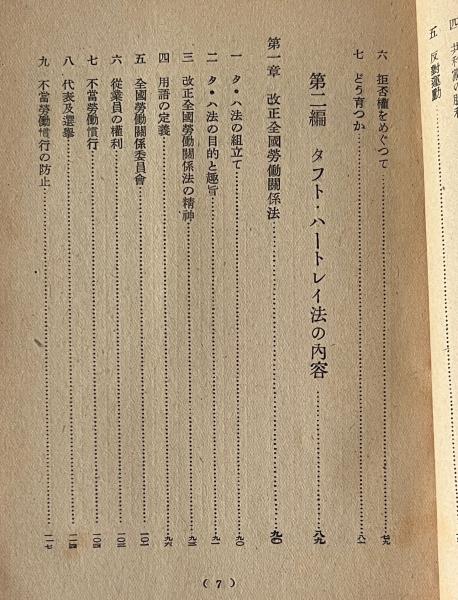 四 共和黨の勝利
五 反對運動
六 拒否權をめぐつて……七九
七 どう育つか……八一
第二編 タフト・ハートレイ法の內容……八九
第一章 改正全國勞働關係法……九〇
一 タ・ハ法の組立て……九〇
二 タ・ハ法の目的と趣旨……九一
三 改正全國勞働關係法の精神……九三
四 用語の定義……九六
五 全國勞働關係委員會……一〇一
六 從業員の權利……一〇三
七 不當勞働慣行……一〇四
八 代表及選擧……一一四
九 不當勞働慣行の防止……一一七
(7)